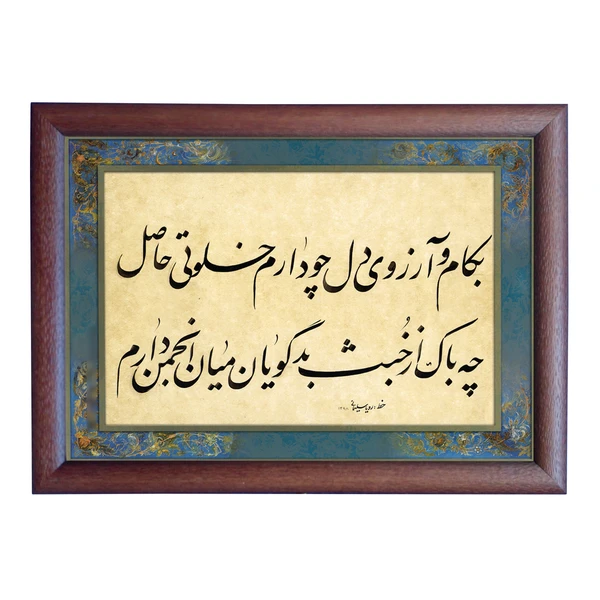 بکام و آرزوی دل چو دارم خلوتی حاصل
چه باک از خُبث بدگویان میان انجمن دارم
خط: